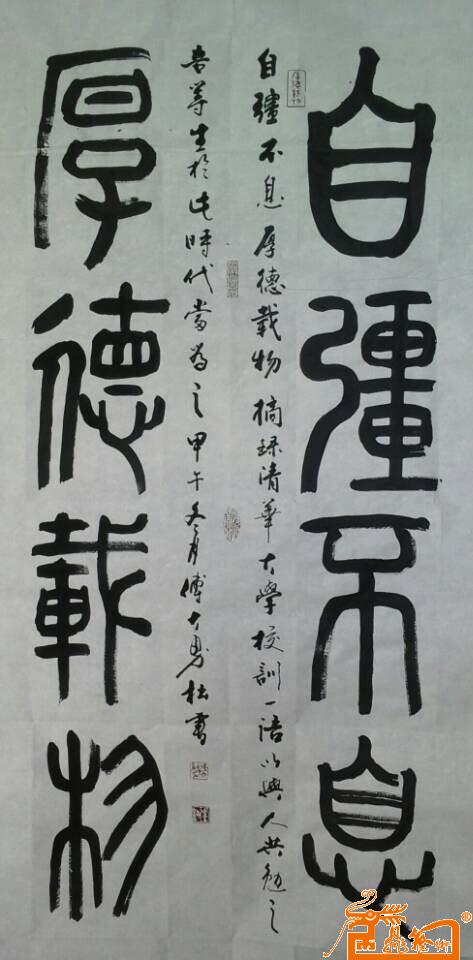 自彊不息
自彊不息厚德載物摘録清華大學校訓一語以與人共勉之
吾等生於此時代當為之甲午冬月傅大勇拙書
厚德載物